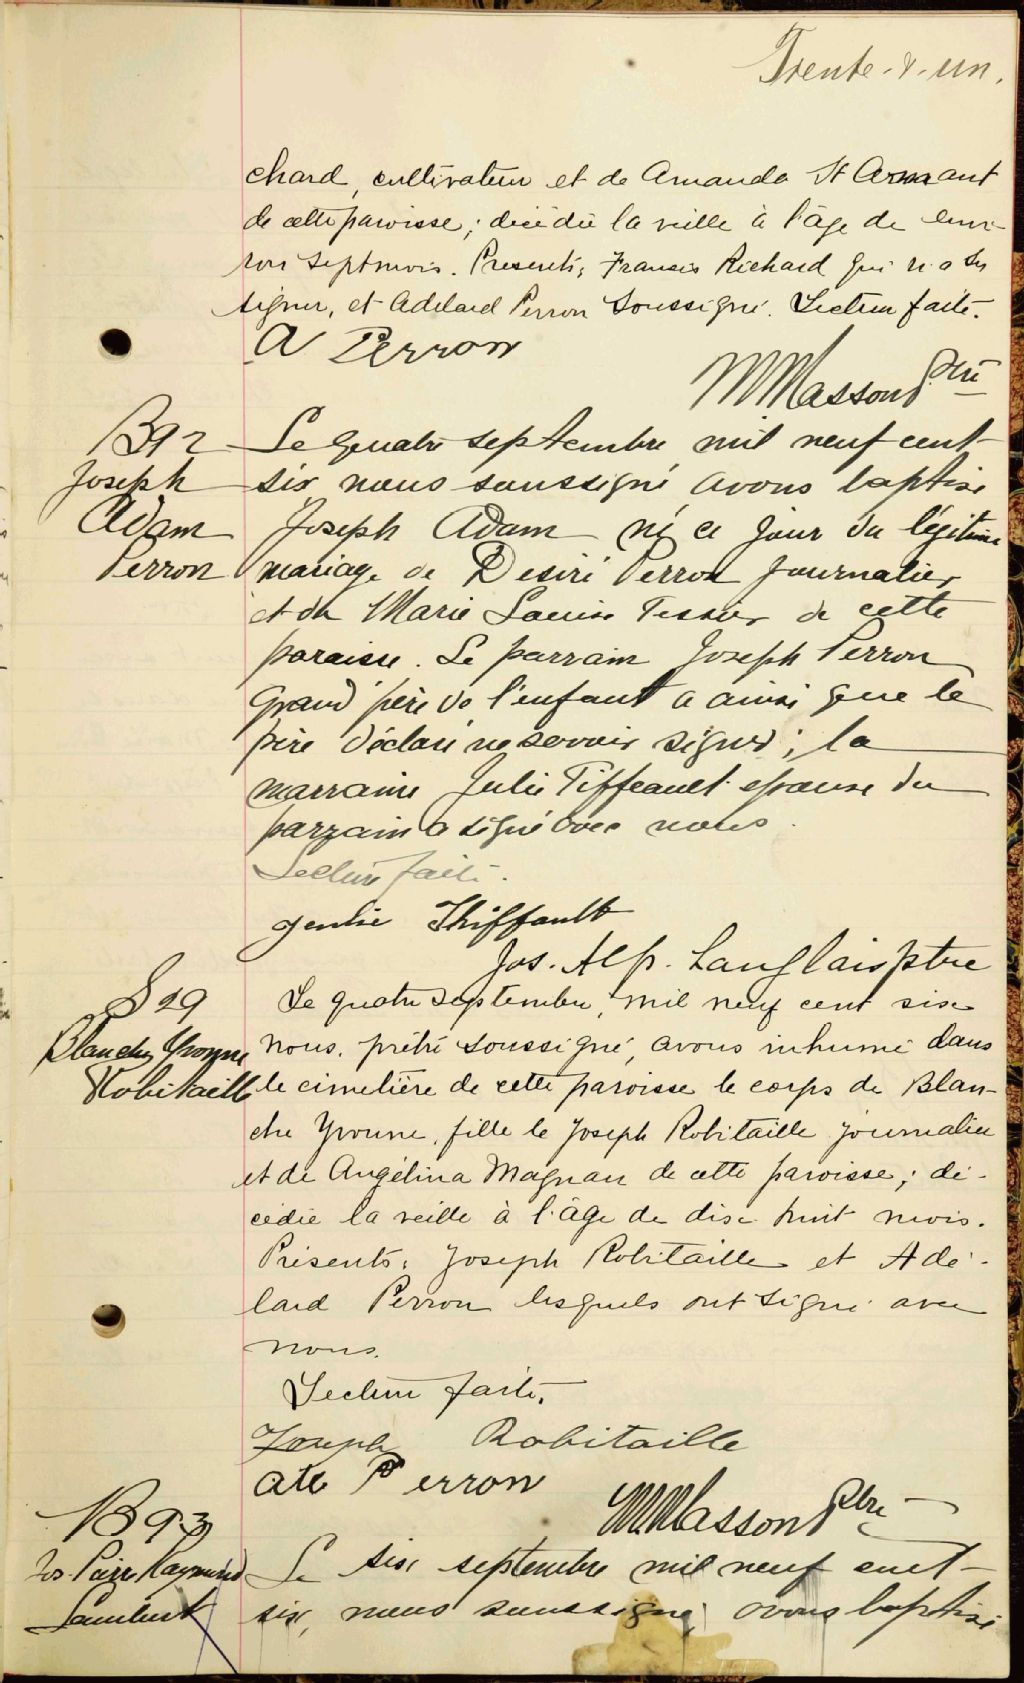 Trente-&-un.
chard, cultivateur et de Amanda St Amant
de cette paroisse; décédée la veille à l'âge de envi-
ron sept mois. Présents, Francis Richard qui n'a su
signer, et Adélard Perron soussigné. Lecture faite.
A Perron
M Masson Ptre
B 92
Joseph
Adam
Perron
Le quatre septembre mil neuf cent
six nous soussigné avons baptisé
Joseph Adam né ce jour du légitime
mariage de Désiré Perron journalier
et de Marie Louise Tessier de cette
paroisse. Le parrain Joseph Perron
grand père de l'enfant a ainsi que le
père déclaré ne savoir signer; la
marraine Julie Tiffeault épouse du
parrain a signé avec nous.
Lecture faite.
Thiffault
Jos. Alp. Langlais ptre
S 29
Blanche Yvonne
Robitaille
Le quatre septembre, mil neuf cent six
nous, prêtre soussigné, avons inhumé dans
le cimetière de cette paroisse le corps de Blan-
che Yvonne, fille de Joseph Robitaille journalier
et de Angélina Magnan de cette paroisse; dé-
cédée la veille à l'âge de dix huit mois.
Présents, Joseph Robitaille et Adé-
lard Perron lesquels ont signé avec
nous.
Lecture faite.
Joseph Robitaille
Perron
M Masson Ptre
B 93
Jos Pierre Raymond
Lambert
Le six septembre mil neuf cent
six, nous soussigné, avons baptisé